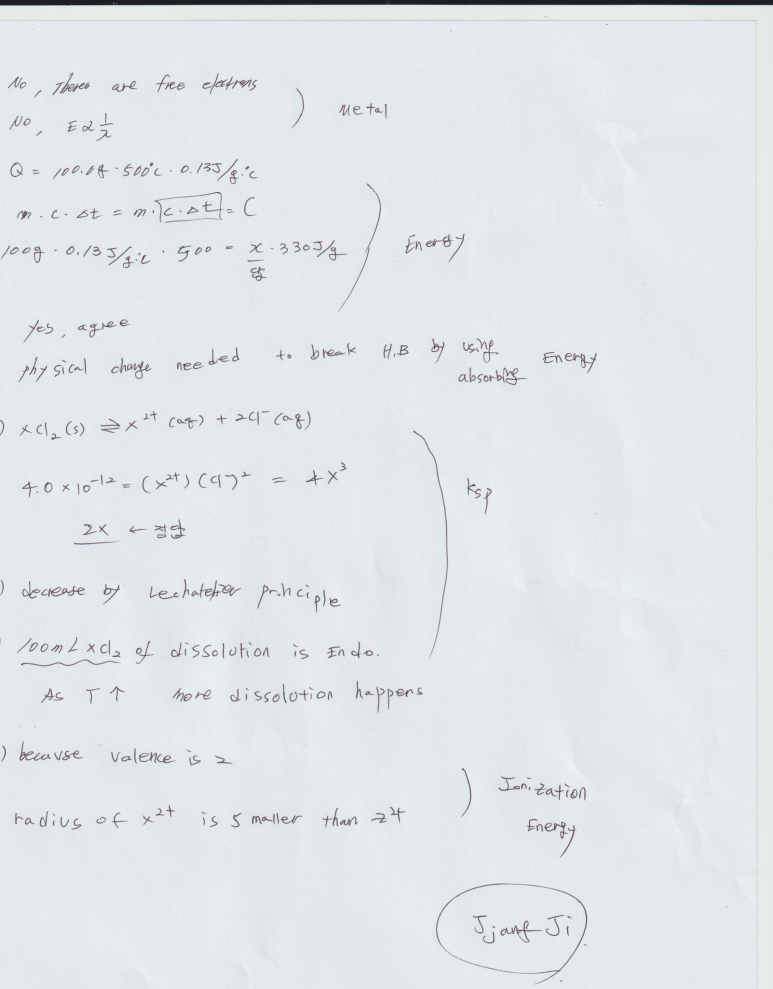 No, Theres are free electrons
No, E ∝ 1/λ
) Metal
Q = 100.0g · 500℃ · 0.13J/g·℃
m · c · Δt = m · c · Δt = C
100g · 0.13J/g·℃ · 500 = x · 330J/g
답
) Energy
Yes, agree
physical change needed to break H.B by using Energy
absorbing
) XCl₂(s) ⇌ X²⁺ (aq) + 2Cl⁻ (aq)
4.0 × 10⁻¹² = (X²⁺) (Cl⁻)² = 4X³
2X ← 정답
) Ksp
) decrease by Lechatelier principle
100mL XCl₂ of dissolution is Endo.
As T ↑ more dissolution happens
) because valence is 2
radius of X²⁺ is smaller than Z²⁺
) Ionization
Energy
Jjang Ji